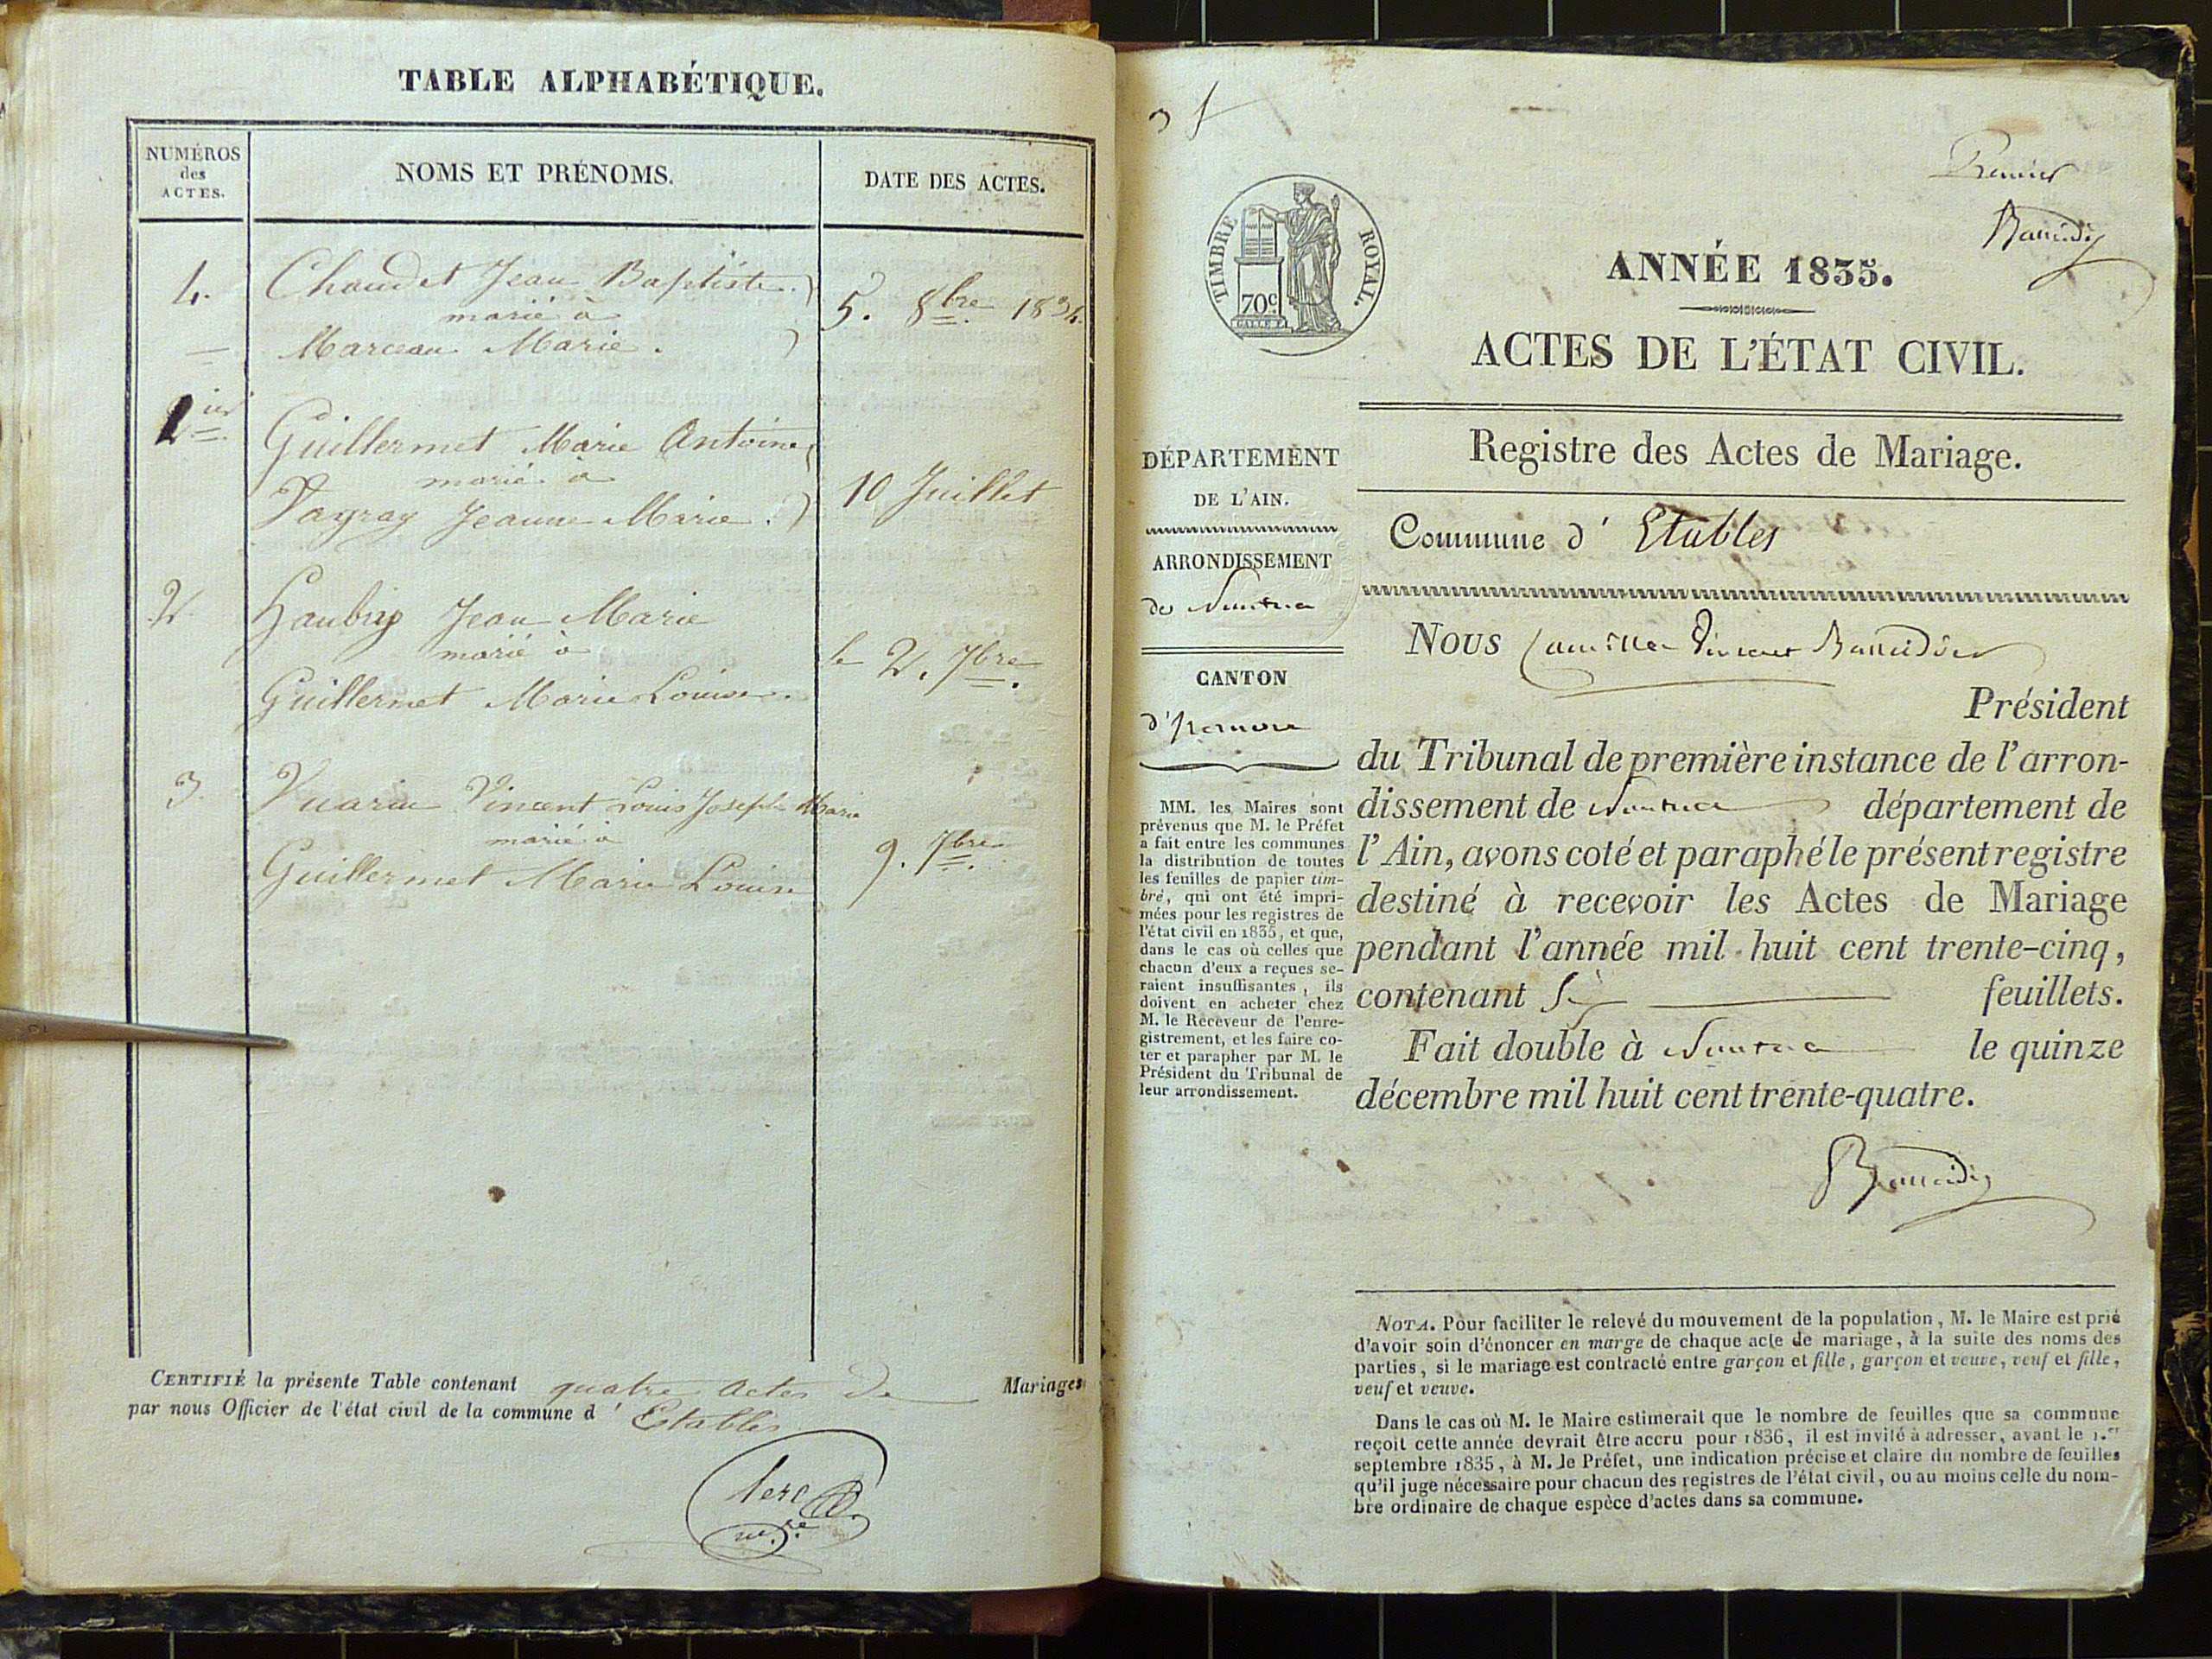 TABLE ALPHABÉTIQUE.
NUMÉROS
des
ACTES.
NOMS ET PRÉNOMS.
DATE DES ACTES.
4. Chaudet Jean Baptiste
marié à
5. 8bre 1834
Marceau Marie.
1ier
Guillermet Marie Antoine
marié à
10 Juillet
Vayray Jeanne Marie.
2. Jean Marie
marié à
le 2. 7bre.
Guillermet Marie Louise.
3. Vuarin Vincent Louis Joseph Marie
marié à
9. 7bre.
Guillermet Marie Louise
CERTIFIÉ la présente Table contenant quatre actes de Mariages
par nous Officier de l'état civil de la commune d' Etables
mre.
Premier
TIMBRE ROYAL.
70c
ANNÉE 1835.
ACTES DE L'ÉTAT CIVIL.
Registre des Actes de Mariage.
Commune d' Etables
DÉPARTEMENT
DE L'AIN.
ARRONDISSEMENT
de Nantua
CANTON
d'Izernore
MM. les Maires sont
prévenus que M. le Préfet
a fait entre les communes
la distribution de toutes
les feuilles de papier tim-
bré, qui ont été impri-
mées pour les registres de
l'état civil en 1835, et que,
dans le cas où celles que
chacun d'eux a reçues se-
raient insuffisantes, ils
doivent en acheter chez
M. le Receveur de l'enre-
gistrement, et les faire co-
ter et parapher par M. le
Président du Tribunal de
leur arrondissement.
Nous Camille Vincent
Président
du Tribunal de première instance de l'arron-
dissement de Nantua département de
l'Ain, avons coté et paraphé le présent registre
destiné à recevoir les Actes de Mariage
pendant l'année mil huit cent trente-cinq,
contenant Six feuillets.
Fait double à Nantua le quinze
décembre mil huit cent trente-quatre.
NOTA. Pour faciliter le relevé du mouvement de la population, M. le Maire est prié
d'avoir soin d'énoncer en marge de chaque acte de mariage, à la suite des noms des
parties, si le mariage est contracté entre garçon et fille, garçon et veuve, veuf et fille,
veuf et veuve.
Dans le cas où M. le Maire estimerait que le nombre de feuilles que sa commune
reçoit cette année devrait être accru pour 1836, il est invité à adresser, avant le 1.er
septembre 1835, à M. le Préfet, une indication précise et claire du nombre de feuilles
qu'il juge nécessaire pour chacun des registres de l'état civil, ou au moins celle du nom-
bre ordinaire de chaque espèce d'actes dans sa commune.